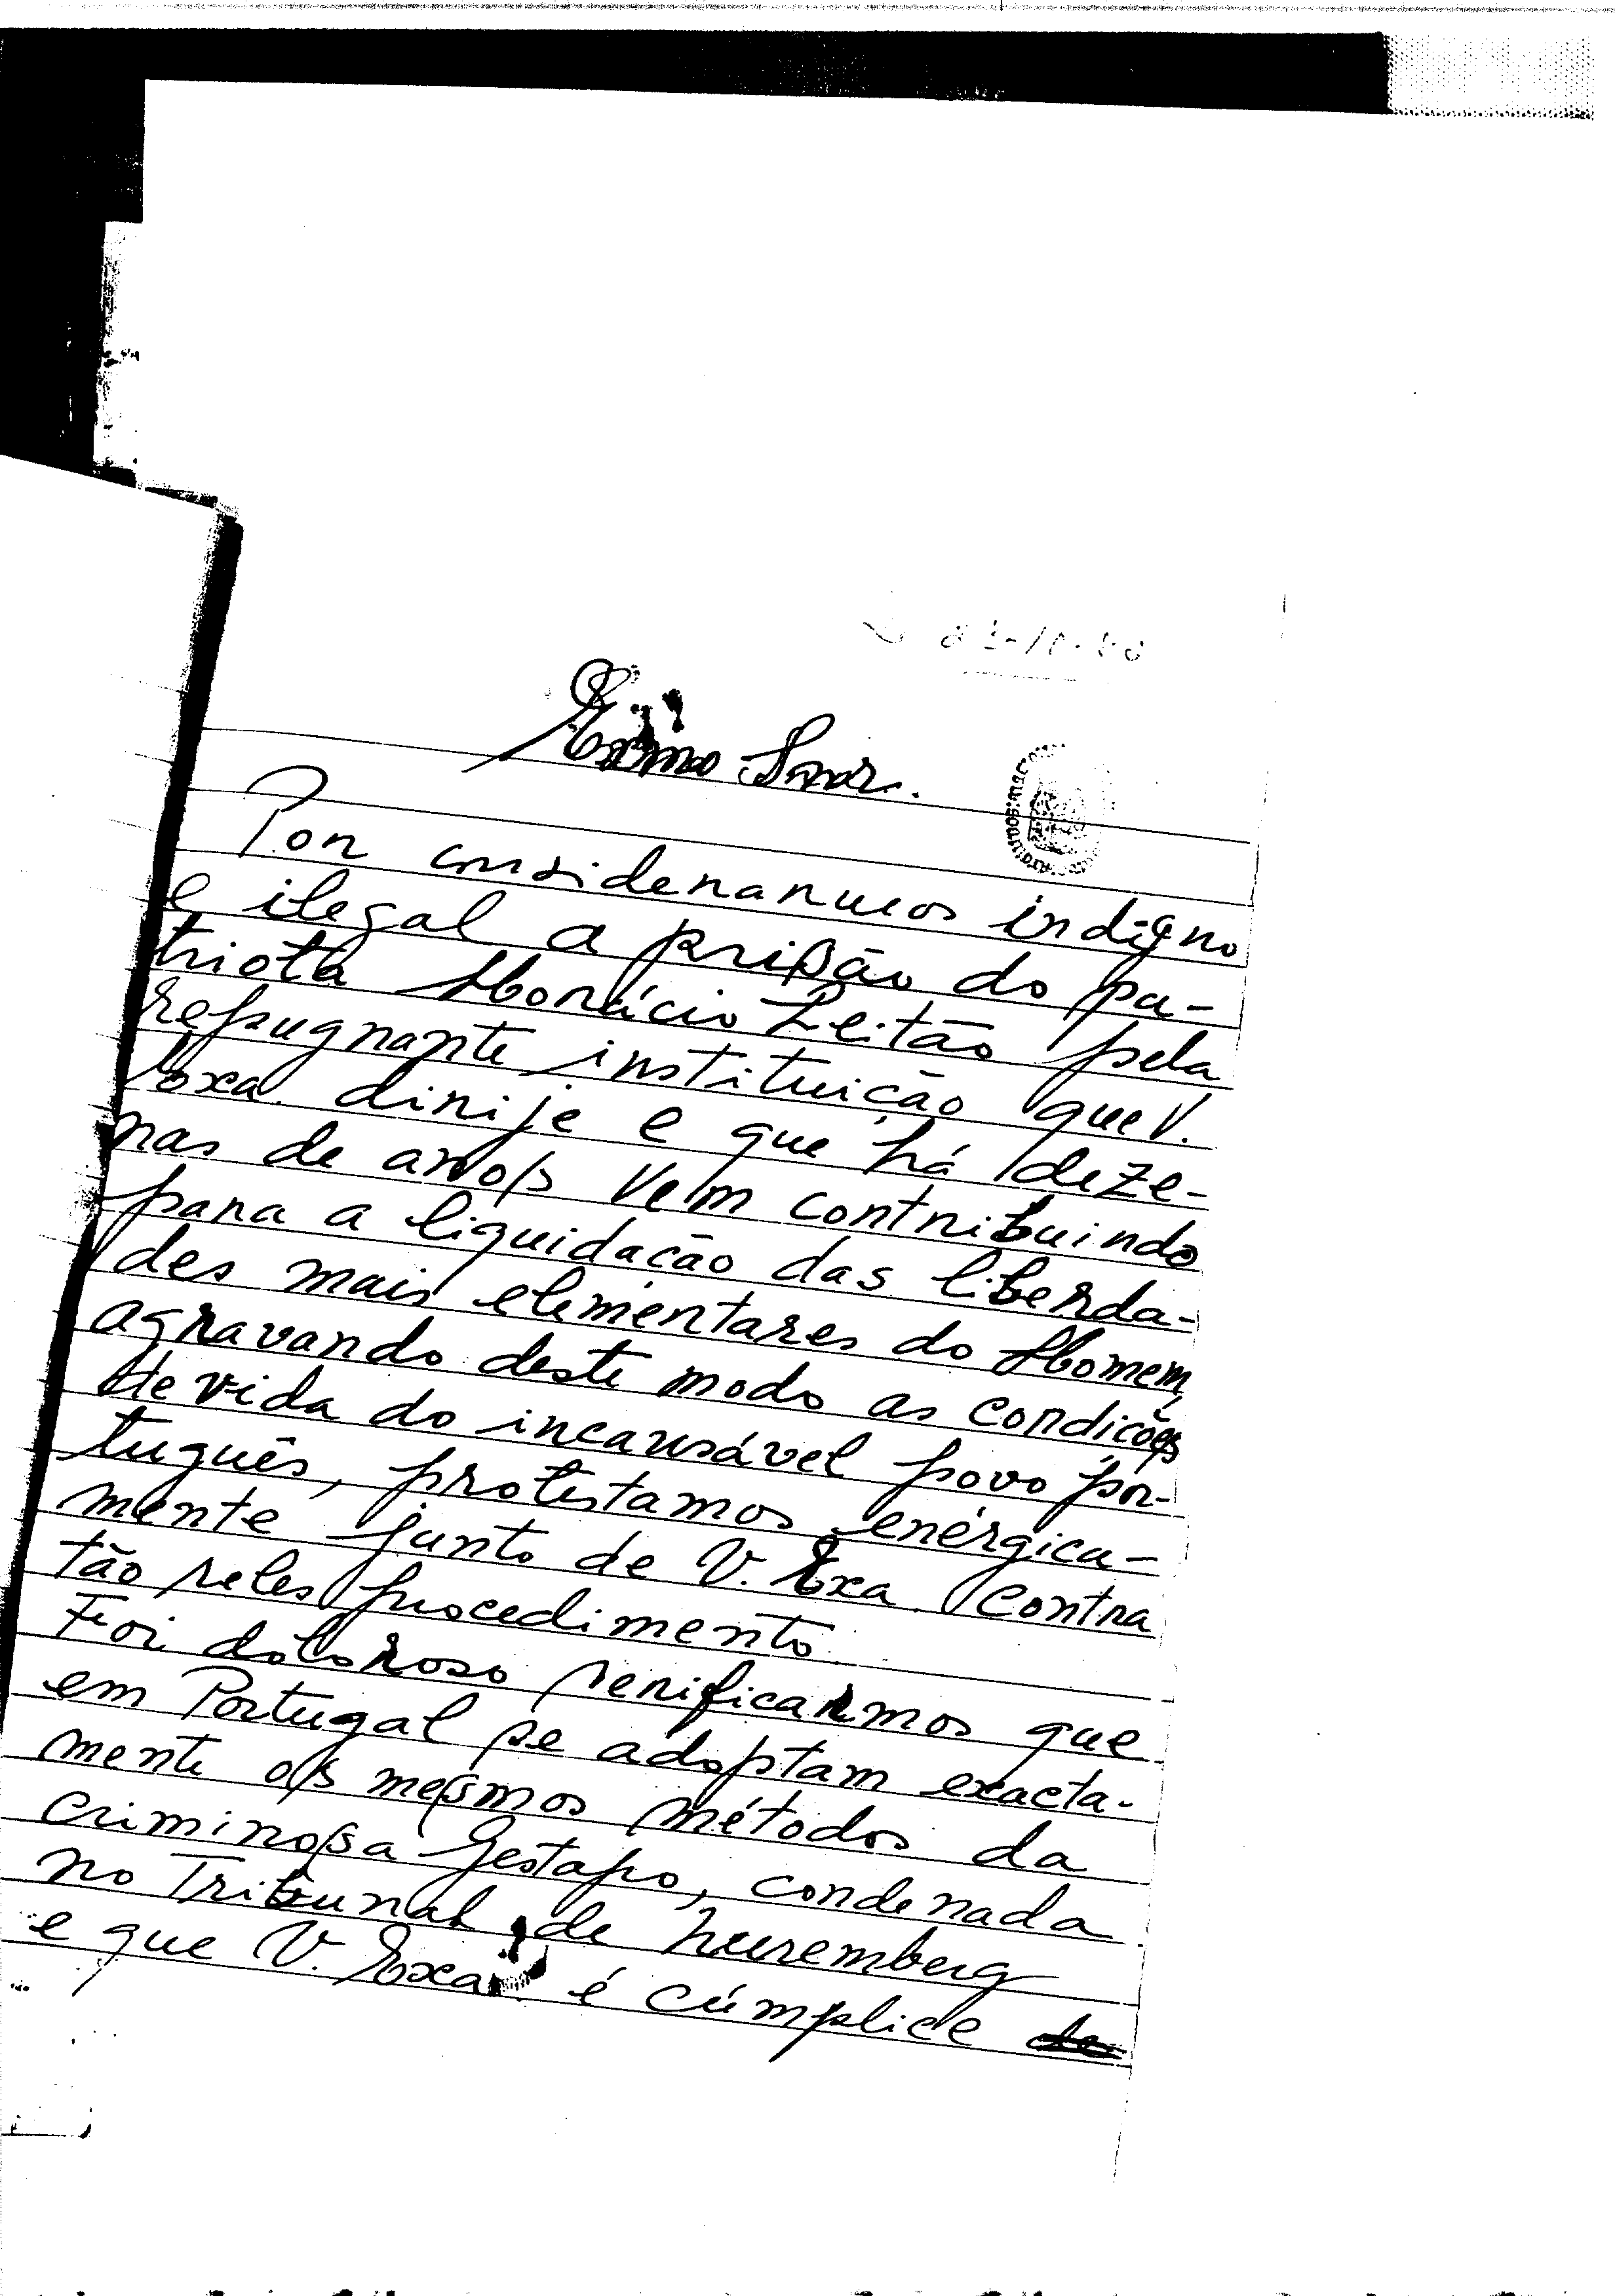 Exmo Snr.
Por considerarmos indigno
e ilegal a prisão do pa-
triota Horácio Leitão pela
repugnante instituição que V.
Exa. dirije e que há deze-
nas de anos vem contribuindo
para a liquidação das liberda-
des mais elementares do Homem,
agravando deste modo as condições
de vida do incansável povo por-
tuguês, protestamos enérgica-
mente junto de V. Exa. contra
tão reles procedimento.
Foi doloroso verificarmos que
em Portugal se adoptam exacta-
mente os mesmos métodos da
criminosa Gestapo, condenada
no Tribunal de Nuremberg
e que V. Exa. é cúmplice